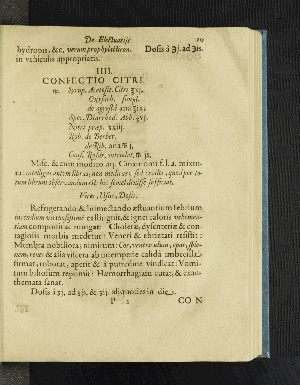 De Electuariis
hydropis, &c. verum prophylacticon. Dosis à ʒj. ad ʒis.
in vehiculis appropriatis.
IIII.
CONFECTIO CITRI.
Syrup. Acetosit. Citri
Oxysach. simpl.
de agresta ana
Spec. Diarrhod. Abb.
Nitri prep.
Rob. de Berber.
de Rib. ana
Cons. Rosar.
Misc. & cum modico aq. Cinamomi f.l.a. mixtu-
ra: intelliget autem libras, non medicas; sed
sufficat.
Vires, Usus, Dosis.
Refrigerando & humectando æstuantium febrium
incendium extinguit, & ignei caloris vehemen-
tiam compositam mitigat: Choleræ, dysenteriæ & con-
tagiosis morbis medetur: Veneri & ebrietati resistit:
Membra nobiliora; nimirum: Cor, ventriculum, epar, sple-
nem, renes & alia viscera ab intemperie calida imbecilla
firmat, roborat, aperit & à putredine vindicat: Vomi-
tum biliosum reprimit: Hæmorrhagiam curat, & exan-
themata sanat.
Dosis à ʒj, ad ʒis, & ʒij. aliquoties in die.
P 2 CON